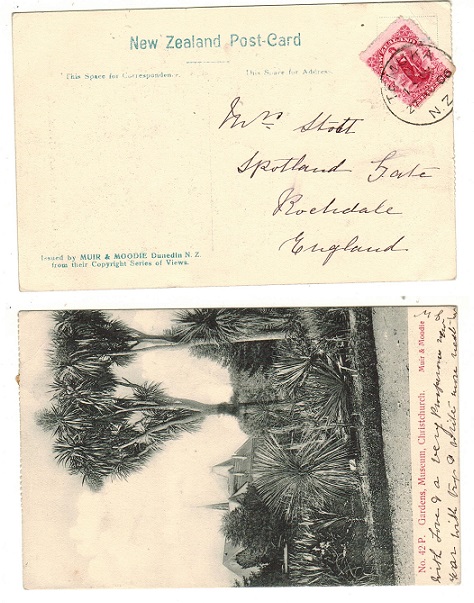 New Zealand Post-Card
This Space for Correspondence.
This Space for Address.
NEW ZEALAND
N.Z
Mrs Stott
Spotland Gate
Rochdale
England
Issued by MUIR & MOODIE Dunedin N. Z.
from their Copyright Series of Views.
No. 42 P. Gardens, Museum, Christchurch. Muir & Moodie
with Love & a very Prosperous New
Year with